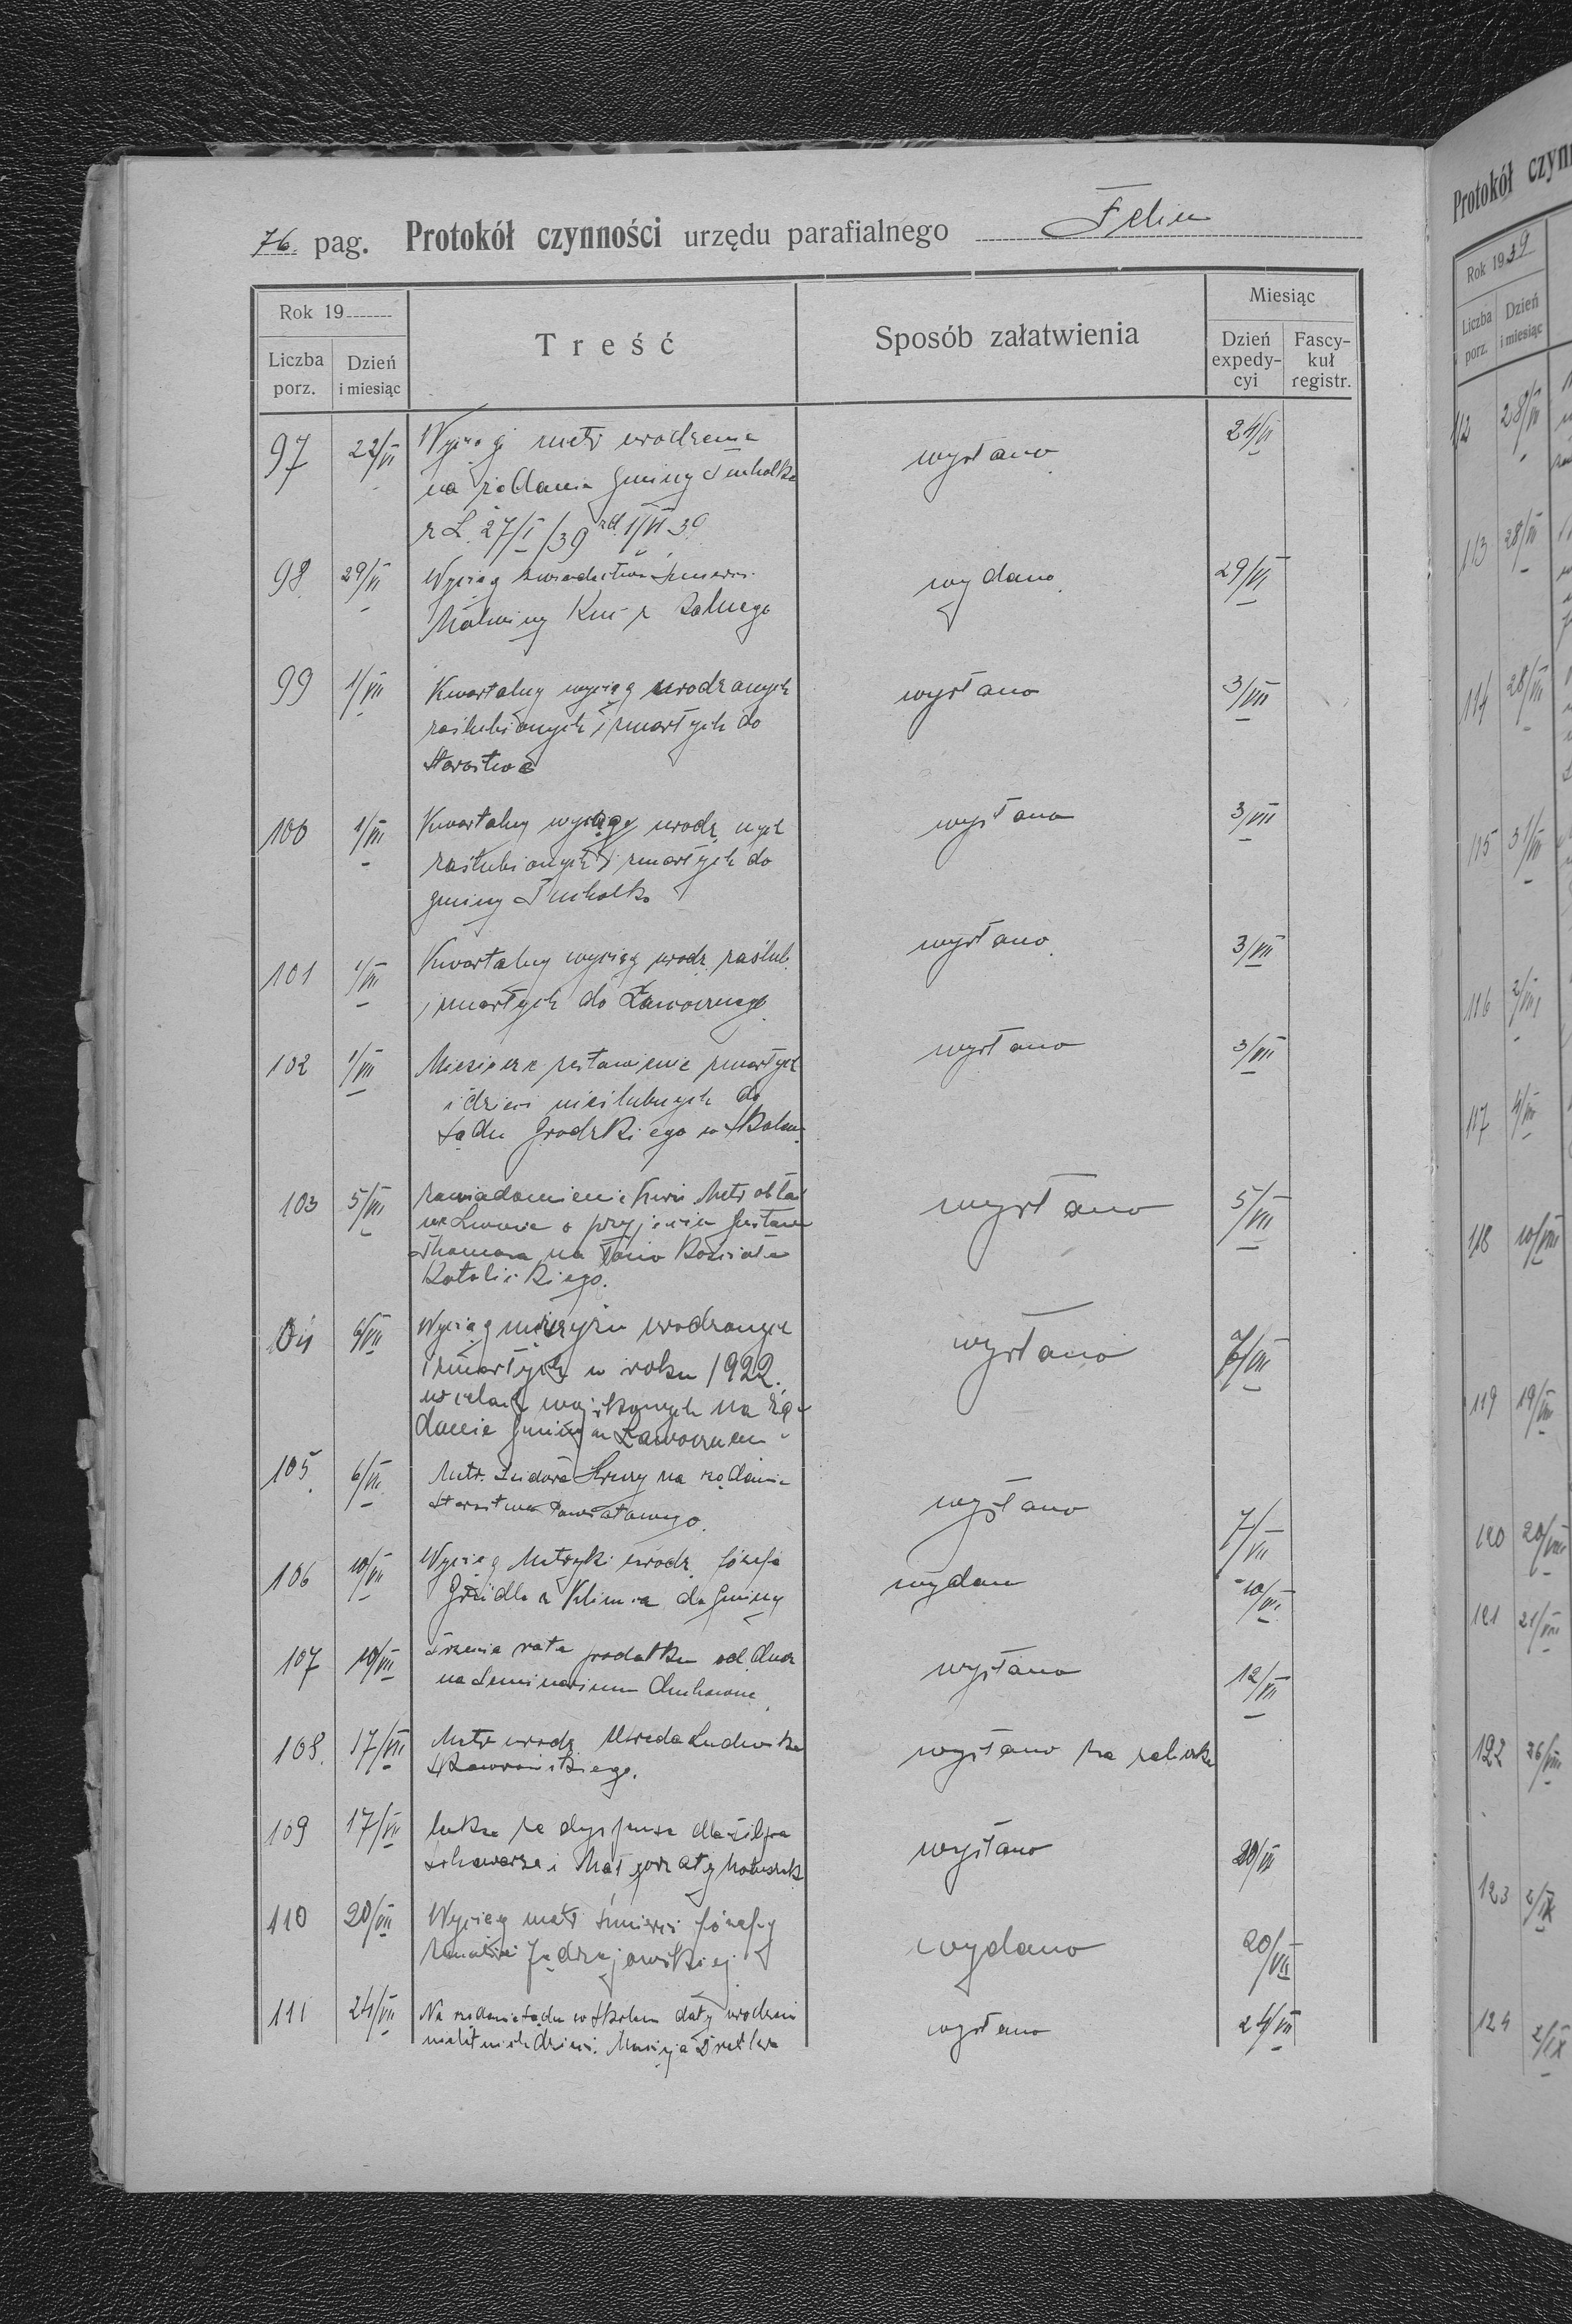 76. pag. Protokół czynności urzędu parafialnego Felin
Rok 19
Liczba porz.
Dzień i miesiąc
Treść
Sposób załatwienia
Miesiąc
Dzień expedycyi
Fascykuł registr.
97 22/VI Wyciągi metr urodzenia wysłano 24/VI
na żądanie gminy Tucholka
z L. 27/I/39 zd. 1/VI 39
98 29/VI Wyciąg świadectwa śmierci wydano 29/VI
Malwiny
99 1/VII Kwartalny wyciąg urodzonych wysłano 3/VII
zaślubionych i zmarłych do
Starostwa
100 1/VII Kwartalny wyciągy urodz nych wysłano 3/VII
zaślubionych i zmarłych do
gminy Tucholka
101 1/VII Kwartalny wyciąg urodz. zaślub. wysłano 3/VII
i zmarłych do Ławocznego
102 1/VII zestawienie zmarłych wysłano 3/VII
i dzieci nieślubnych do
Sądu Grodzkiego w Skolem
103 5/VII Zawiadomienie Kurii Metr obłać wysłano 5/VII
we Lwowie o przyjęciu Gustawa
na łono Kościoła
Katolickiego.
104 6/VII Wyciąg mężczyzn urodzonych wysłano 7/VII
i zmarłych w roku 1922.
w celach wojskowych na żą-
danie Gminy w Ławocznem
105. 6/VII Metr. na żądanie wysłano 7/VII
Starostwa Powiatowego.
106 10/VII Wyciąg Metryki urodz. Józefa wydano 10/VII
z Klimca do Gminy
107 10/VII Trzecia rata podatku od wysłano 12/VII
na Seminarium Duchowne
108. 17/VII Metr urodz Ludwika wysłano za
Skaworońskiego.
109 17/VII za dyspensa dla wysłano 20/VII
i Małgorzaty
110 20/VII Wyciąg metr śmierci Józefy wydano 20/VII
Jędrzejowskiej
111 24/VII Na żądanie Sądu w Skolem daty urodzeń wysłano 24/VII
dzieci.
Protokół czyn
Rok 1939
Liczba porz.
Dzień i miesiąc
112 28/VII
113 28/VII
114 28/VII
115 31/VII
116 2/VIII
117 4/VIII
118 10/VIII
119 19/VIII
120 20/VIII
121 21/VIII
122 26/VIII
123 2/IX
124 2/IX